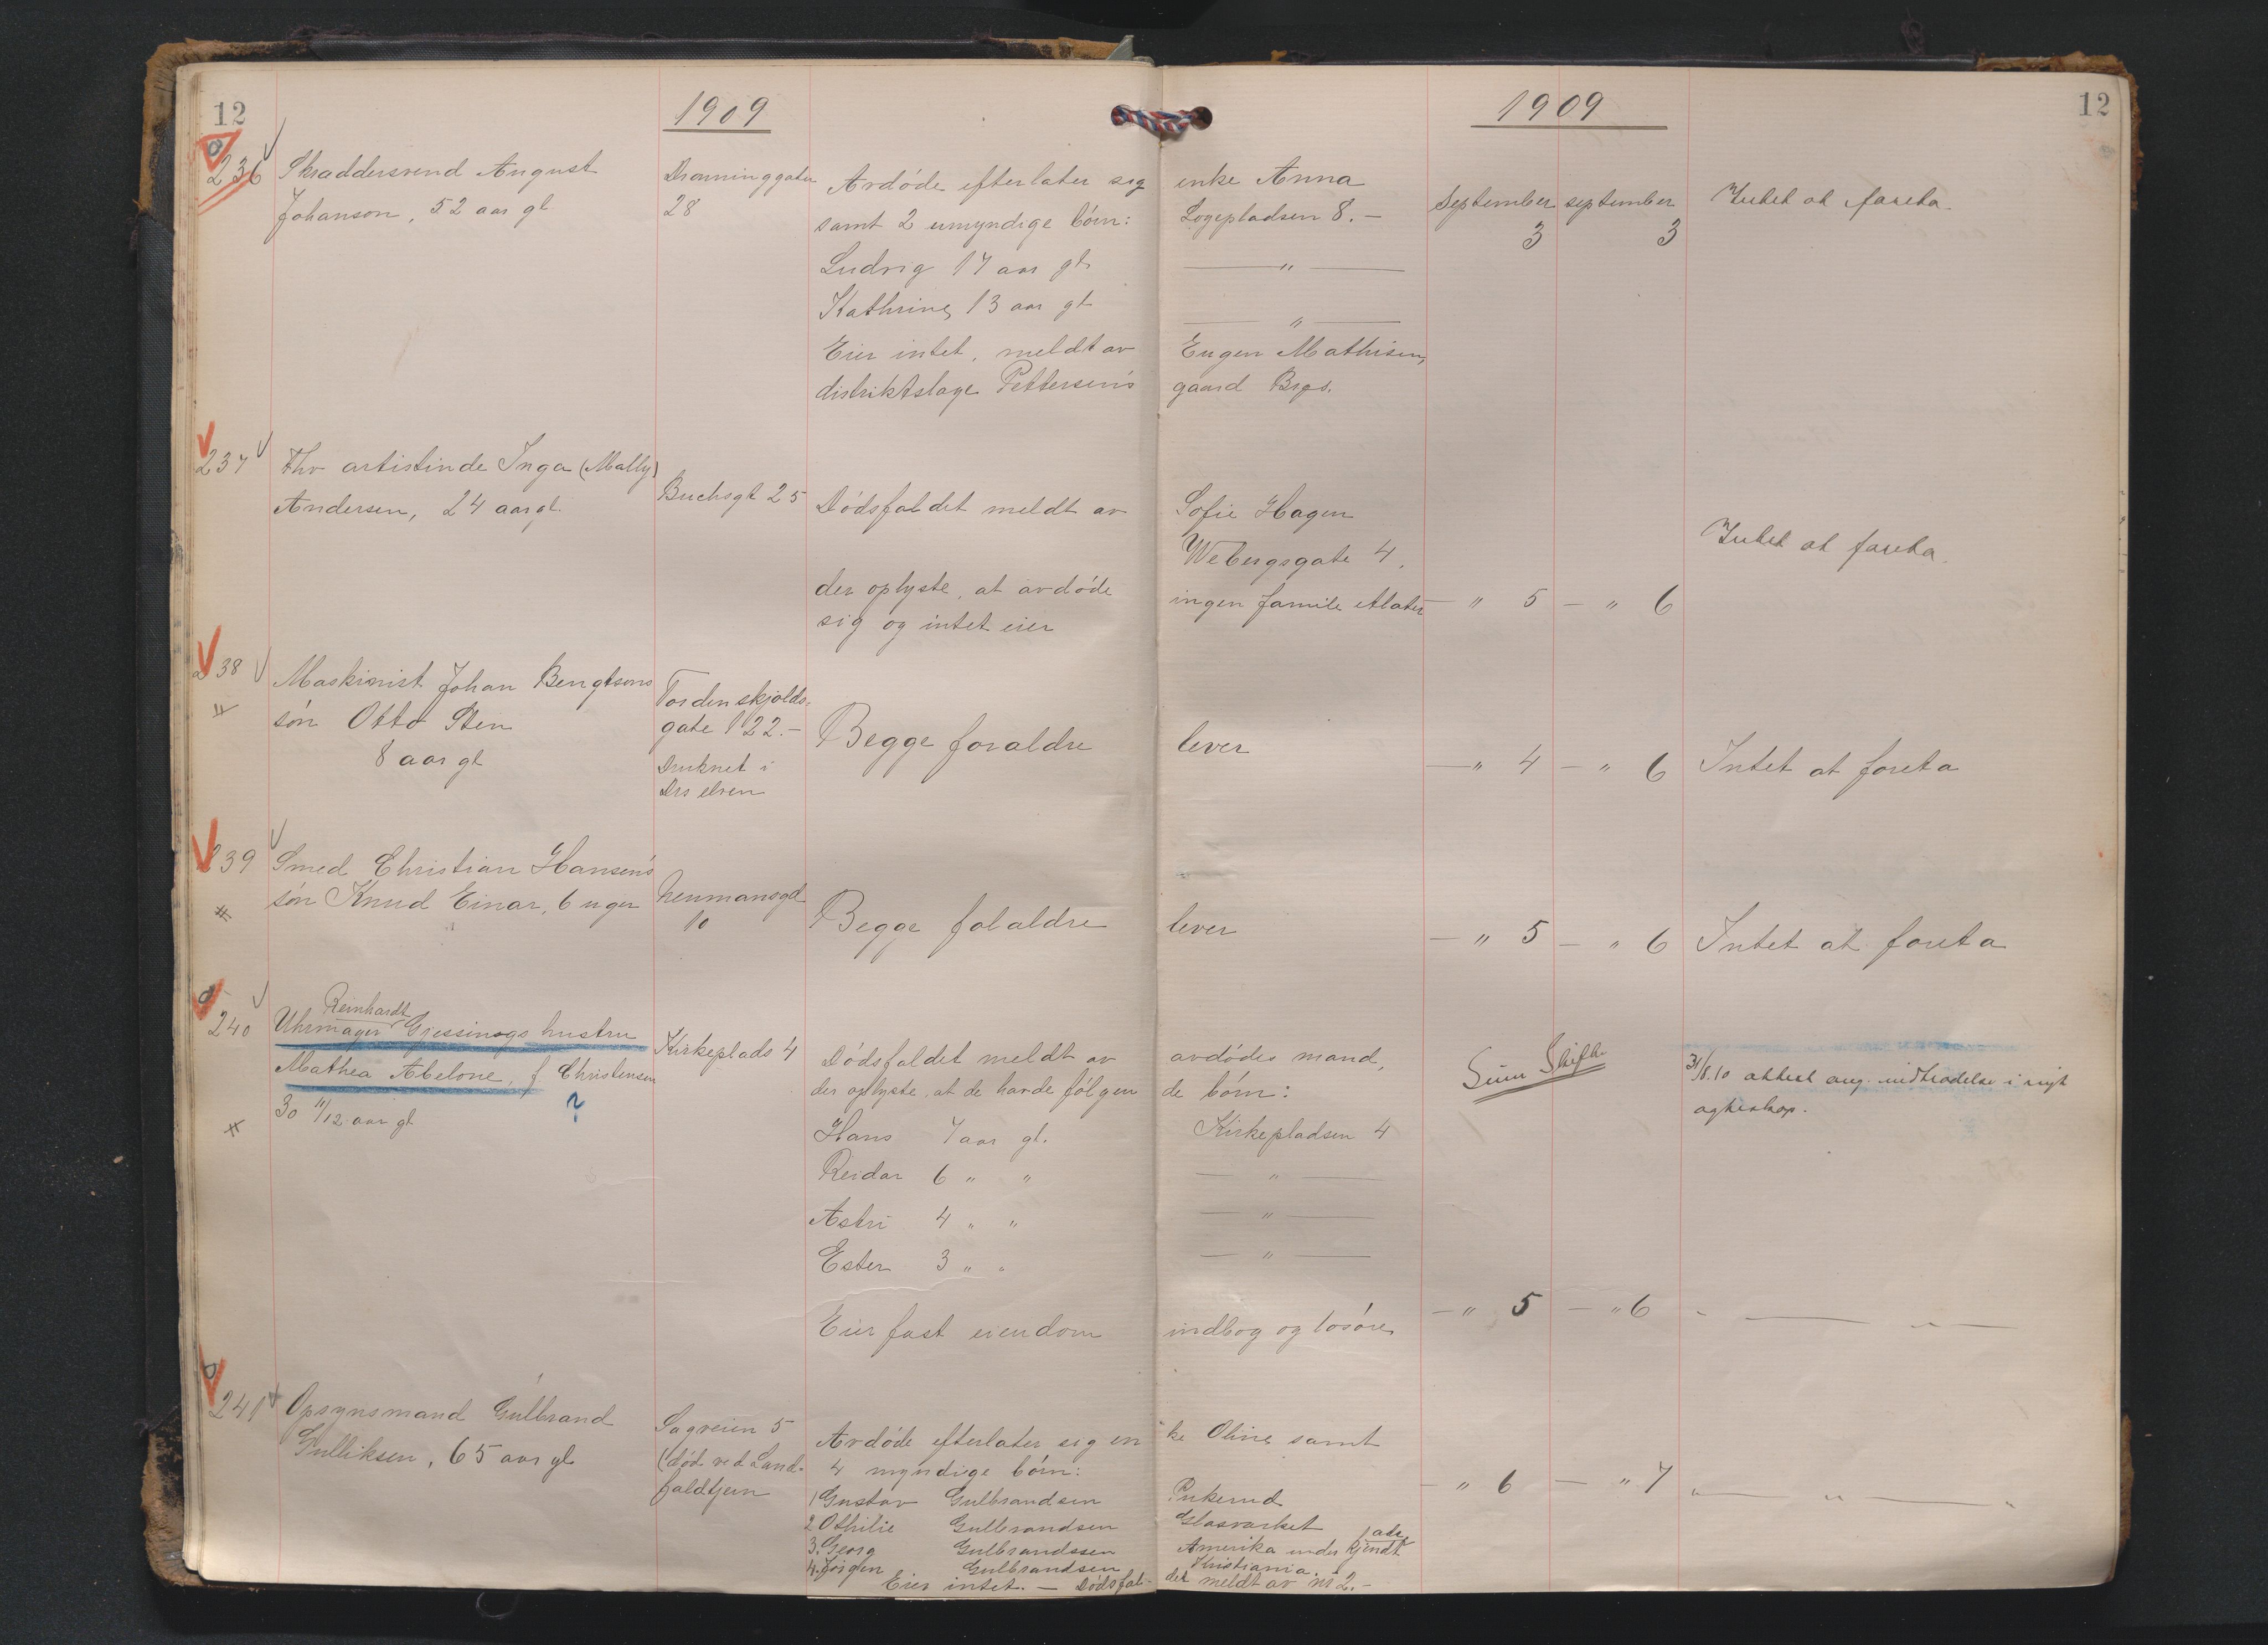 12
1909
1909
12
236 Skraddersvend August
Johanson, 52 aar gl
Dronninggaten
28
Avdöde efterlater sig enke Anna
samt 2 umyndige börn: Logepladsen 8.-
Ludvig 17 aar gl. — " —
Kathrine, 13 aar gl — " —
Eier intet, meldt av Eugen Mathisen,
distriktslage Pettersens gaard Brgs.
September 3 september 3
Intet at foreta.
237 Fhv artistinde Inga (Mally)
Andersen, 24 aar gl.
Buchsgt 25
Dödsfaldet meldt av Sofie Hagen
Webergsgate 4.
der oplyste, at avdöde ingen familie etlater
sig og intet eier
— " 5 — " 6
Intet at foreta.
238 Maskinist Johan Bengtsens
sön Otto Sten
8 aar gl
Tordenskjolds-
gate 122.-
Druknet i
Drs elven
Begge foraldre lever
— " 4 — " 6 Intet at foreta
239 Smed Christian Hansen's
sön Knud Einar, 6 uger
Neumansgt
10
Begge foraldre lever
— " 5 — " 6 Intet at foreta
240 Reinhardt
Uhrmager Gjessings hustru
Mathea Abelone, f Christensen
30 11/12 aar gl
?
Kirkeplads 4
Dödsfaldet meldt av avdödes mand,
der oplyste, at de havde fölgen de börn:
Hans 7 aar gl. Kirkepladsen 4
Reidar 6 " " — " —
Astri 4 " " — " —
Ester 3 " " — " —
Eier fast eiendom indbog og lösöre
— " 5 — " 6 — " —
31/8.10 attest ang. indtradelse i nyt
agteskap.
241 Opsynsmand Gulbrand
Gulliksen, 65 aar gl
Sagveien 5
(död ved Land-
faldtjern
Avdöde efterlater sig en ke Oline samt
4 myndige börn:
1 Gustav Gulbrandsen Pukerud
2 Othilie Gulbrandsen Glasvarket
3. Georg Gulbrandssen Amerika under kjendt adr
4. Jörgen Gulbrandsen Kristiania.
Eier intet. — Dödsfal- det meldt av nr 2.-
— " 6 — " 7 — " —